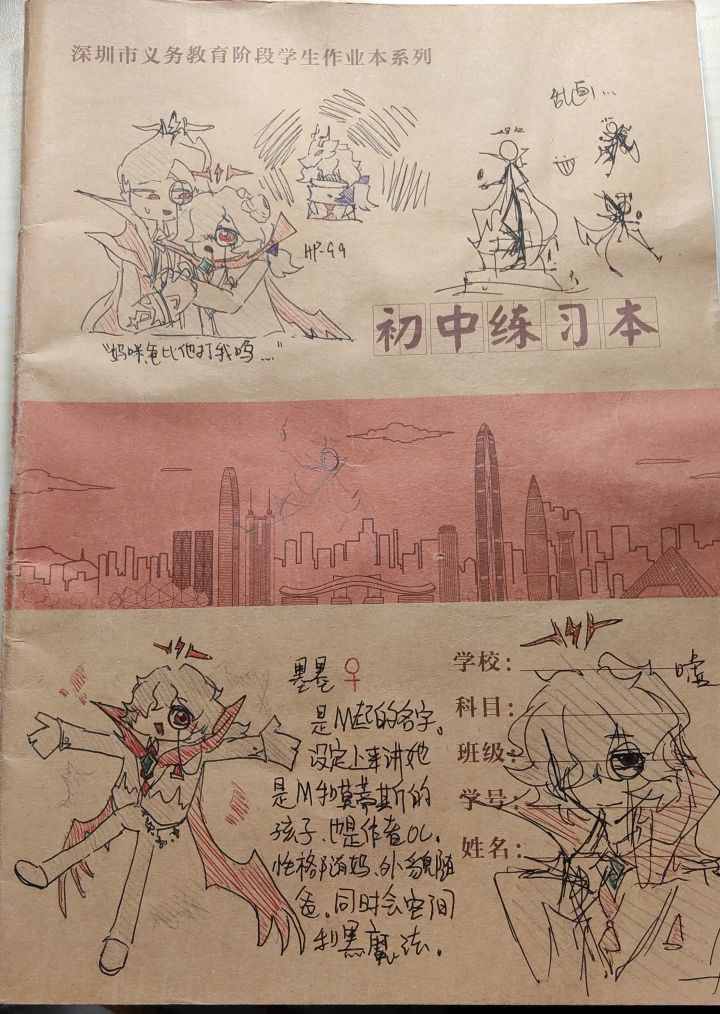 深圳市义务教育阶段学生作业本系列
乱画...
HP-99
初中练习本
"妈咪爸比他打我呜..."
墨墨♀
是M起的名字。
设定上来讲她
是M和莫蒂斯的
孩子、也是作者OC。
性格随妈、外貌随
爸。同时会空间
和黑魔法。
学校：
科目：
班级：
学号：
姓名：
嘘